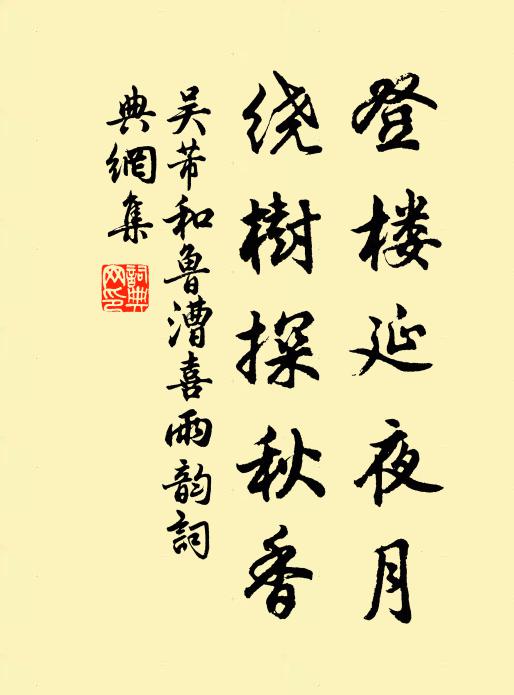 登楼延夜月
绕樹探秋香
吴芾和鲁漕喜雨韵詞
典網集
詞典
网印